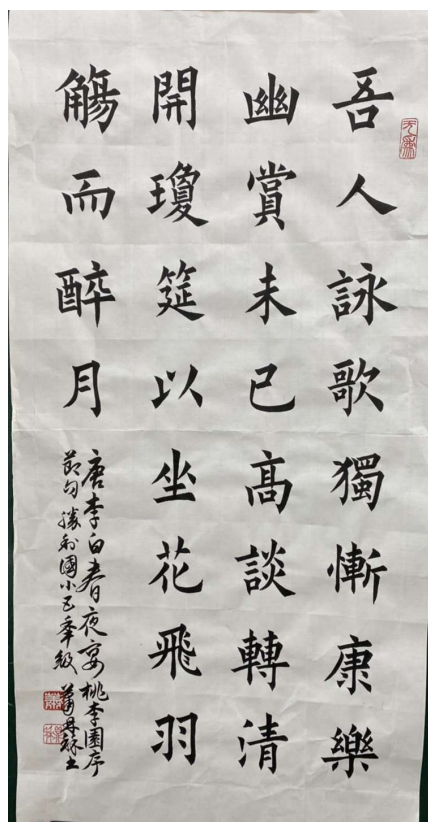 吾人詠歌獨慚康樂
幽賞未已高談轉清
開瓊筵以坐花飛羽
觴而醉月
唐李白春夜宴桃李園序
節句勝利國小五年級蕭